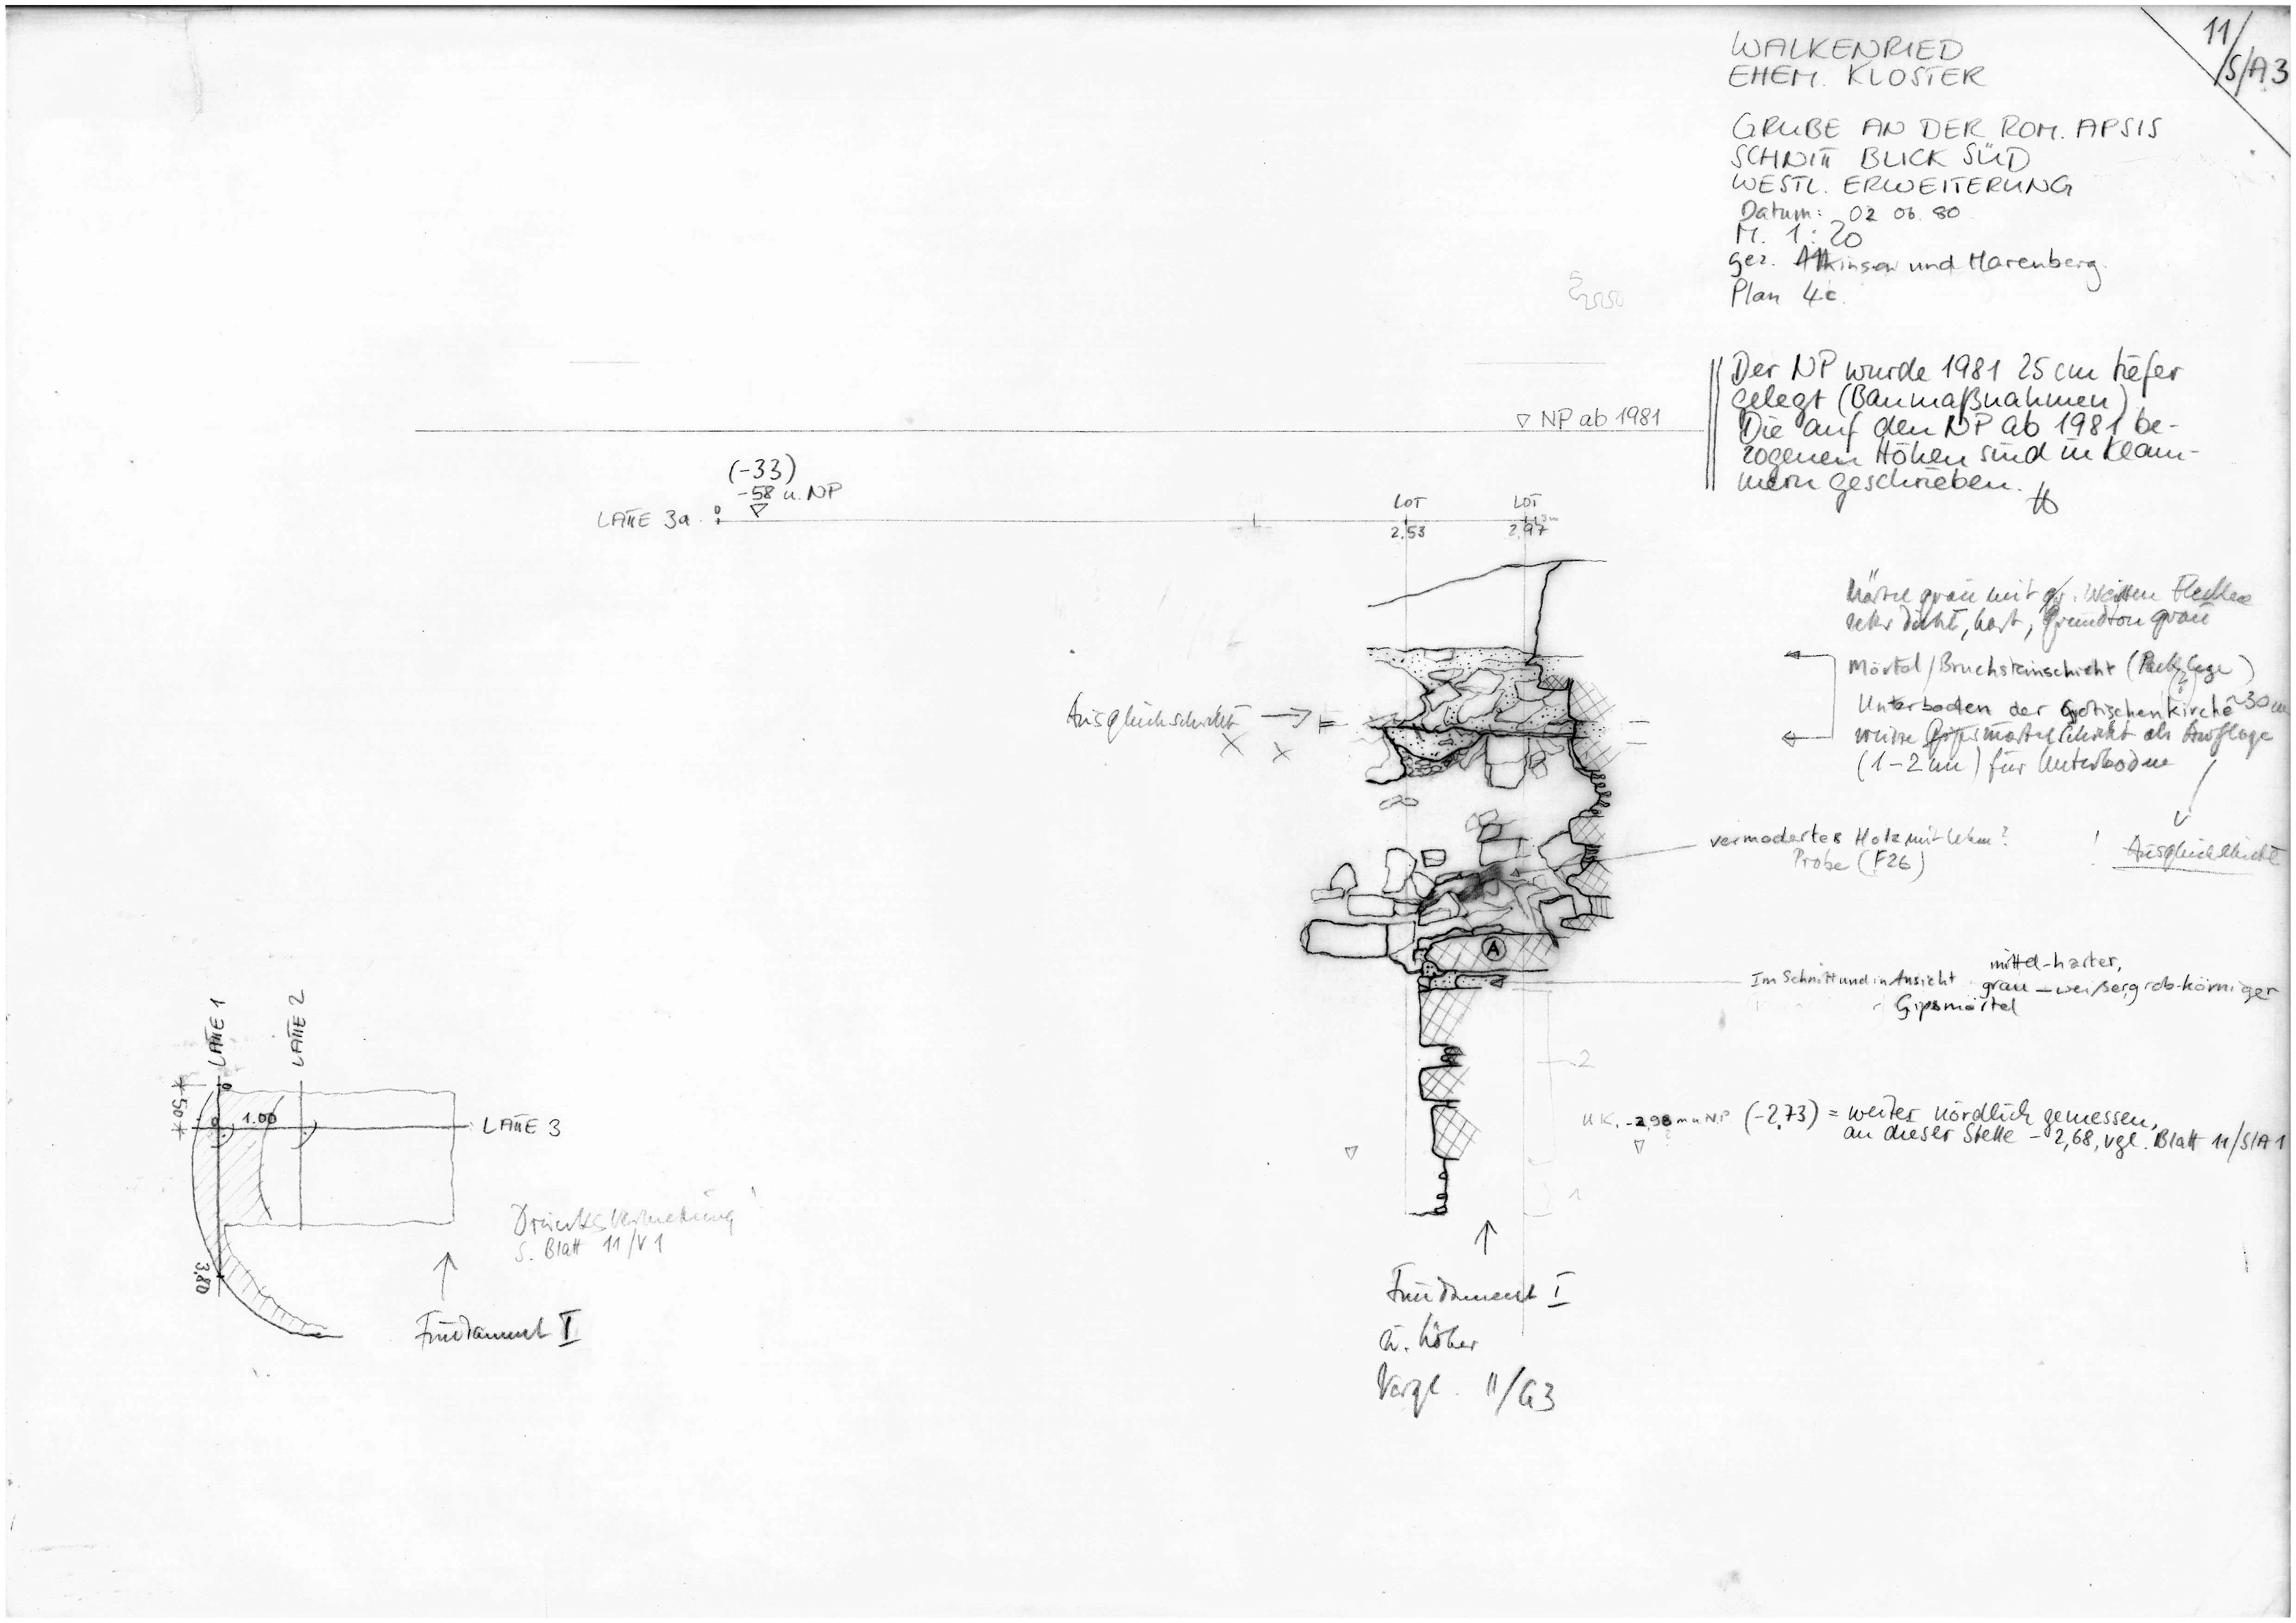 11/S/A3
WALKENRIED
EHEM. KLOSTER
GRUBE AN DER ROM. APSIS
SCHNITT BLICK SÜD
WESTL. ERWEITERUNG
Datum: 02 06. 80
M. 1:20
gez. Atkinson und Marenberg.
Plan 4c.
Der NP wurde 1981 25 cm tiefer
gelegt (Baumaßnahmen)
Die auf den NP ab 1981 be-
zogenen Höhen sind in Klam-
mern geschrieben.
▽ NP ab 1981
(-33)
-58 u. NP
LATTE 3a
0
LOT
2,53
LOT
2,97
Mörtel grau mit gr. weißen Flecken
sehr dicht, hart, Grundton grau
Mörtel/Bruchsteinschicht (Packlage)
(?)
Unterboden der Gotischen Kirche ~30 cm
weisse Gipsmörtelschicht als Auflage
(1-2 cm) für Unterboden
! Ausgleichschicht
Ausgleichschicht
vermodertes Holz mit Lehm?
Probe (F26)
A
Im Schnitt und in Ansicht mittel-harter,
grau-weißer, grob-körniger
Gipsmörtel
2
1
UK. -2,98 m u NP (-2,73) = weiter nördlich gemessen,
an dieser Stelle -2,68, vgl. Blatt 11/S/A1
Fundament I
u. höher
Vergl. 11/G3
LATTE 1
LATTE 2
LATTE 3
50
0
0
1.00
3,80
Dreiecksvermessung
s. Blatt 11/V1
Fundament I